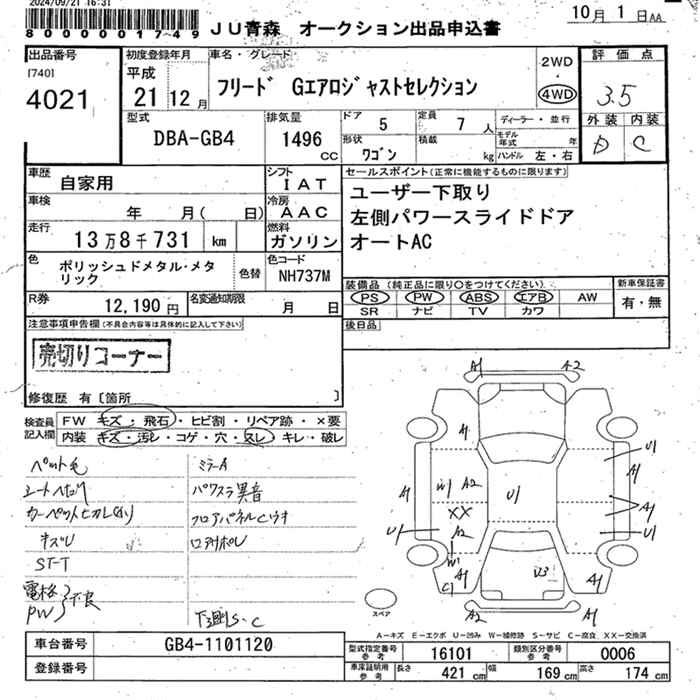 2024/09/21 16:31
80000001749
JU青森 オークション出品申込書
10月 1日AA
出品番号
[740]
4021
初度登録年月
平成
21年12月
車名・グレード
フリード Gエアロジャストセレクション
2WD
・
4WD
評価点
3.5
外装 内装
D C
型式
DBA-GB4
排気量
1496
cc
ドア 5
定員 7人
ディーラー・並行
モデル年式 年
形状 ワゴン
積載 kg
ハンドル 左・右
車歴 自家用
シフト IAT
車検 年 月( 日)
冷房 AAC
走行 13万8千731 km
燃料 ガソリン
色 ポリッシュドメタル・メタリック
色替
色コード NH737M
R券 12,190円
名変通知期限 月 日
セールスポイント(正常に機能するものに限ります)
ユーザー下取り
左側パワースライドドア
オートAC
装備品(純正品に限り○をつけてください)
PS PW ABS エアB AW
SR ナビ TV カワ
新車保証書
有・無
後日品
注意事項申告欄(不具合内容等は具体的に記入して下さい)
売切りコーナー
修復歴 有〔箇所 〕
検査員記入欄
FW キズ・飛石・ヒビ割・リペア跡・×要
内装 キズ・汚レ・コゲ・穴・スレ・キレ・破レ
ペット毛
ミラーA
パワスラ異音
キズU
フロアパネルCウオ
ST-T
電格 不良
PW
下廻りS・C
A1 A2
A1
U1
A1
W1 A2
U1
XX
A1
A1
U1
A2
U1
W1
C1 A1
U3
A1
A2 A1
スペア
A-キズ E-エクボ U-凹み W-補修跡 S-サビ C-腐食 XX-交換済
車台番号 GB4-1101120
登録番号
型式指定番号参考 16101
類別区分番号参考 0006
車庫証明用参考 長さ 421 cm 幅 169 cm 高さ 174 cm